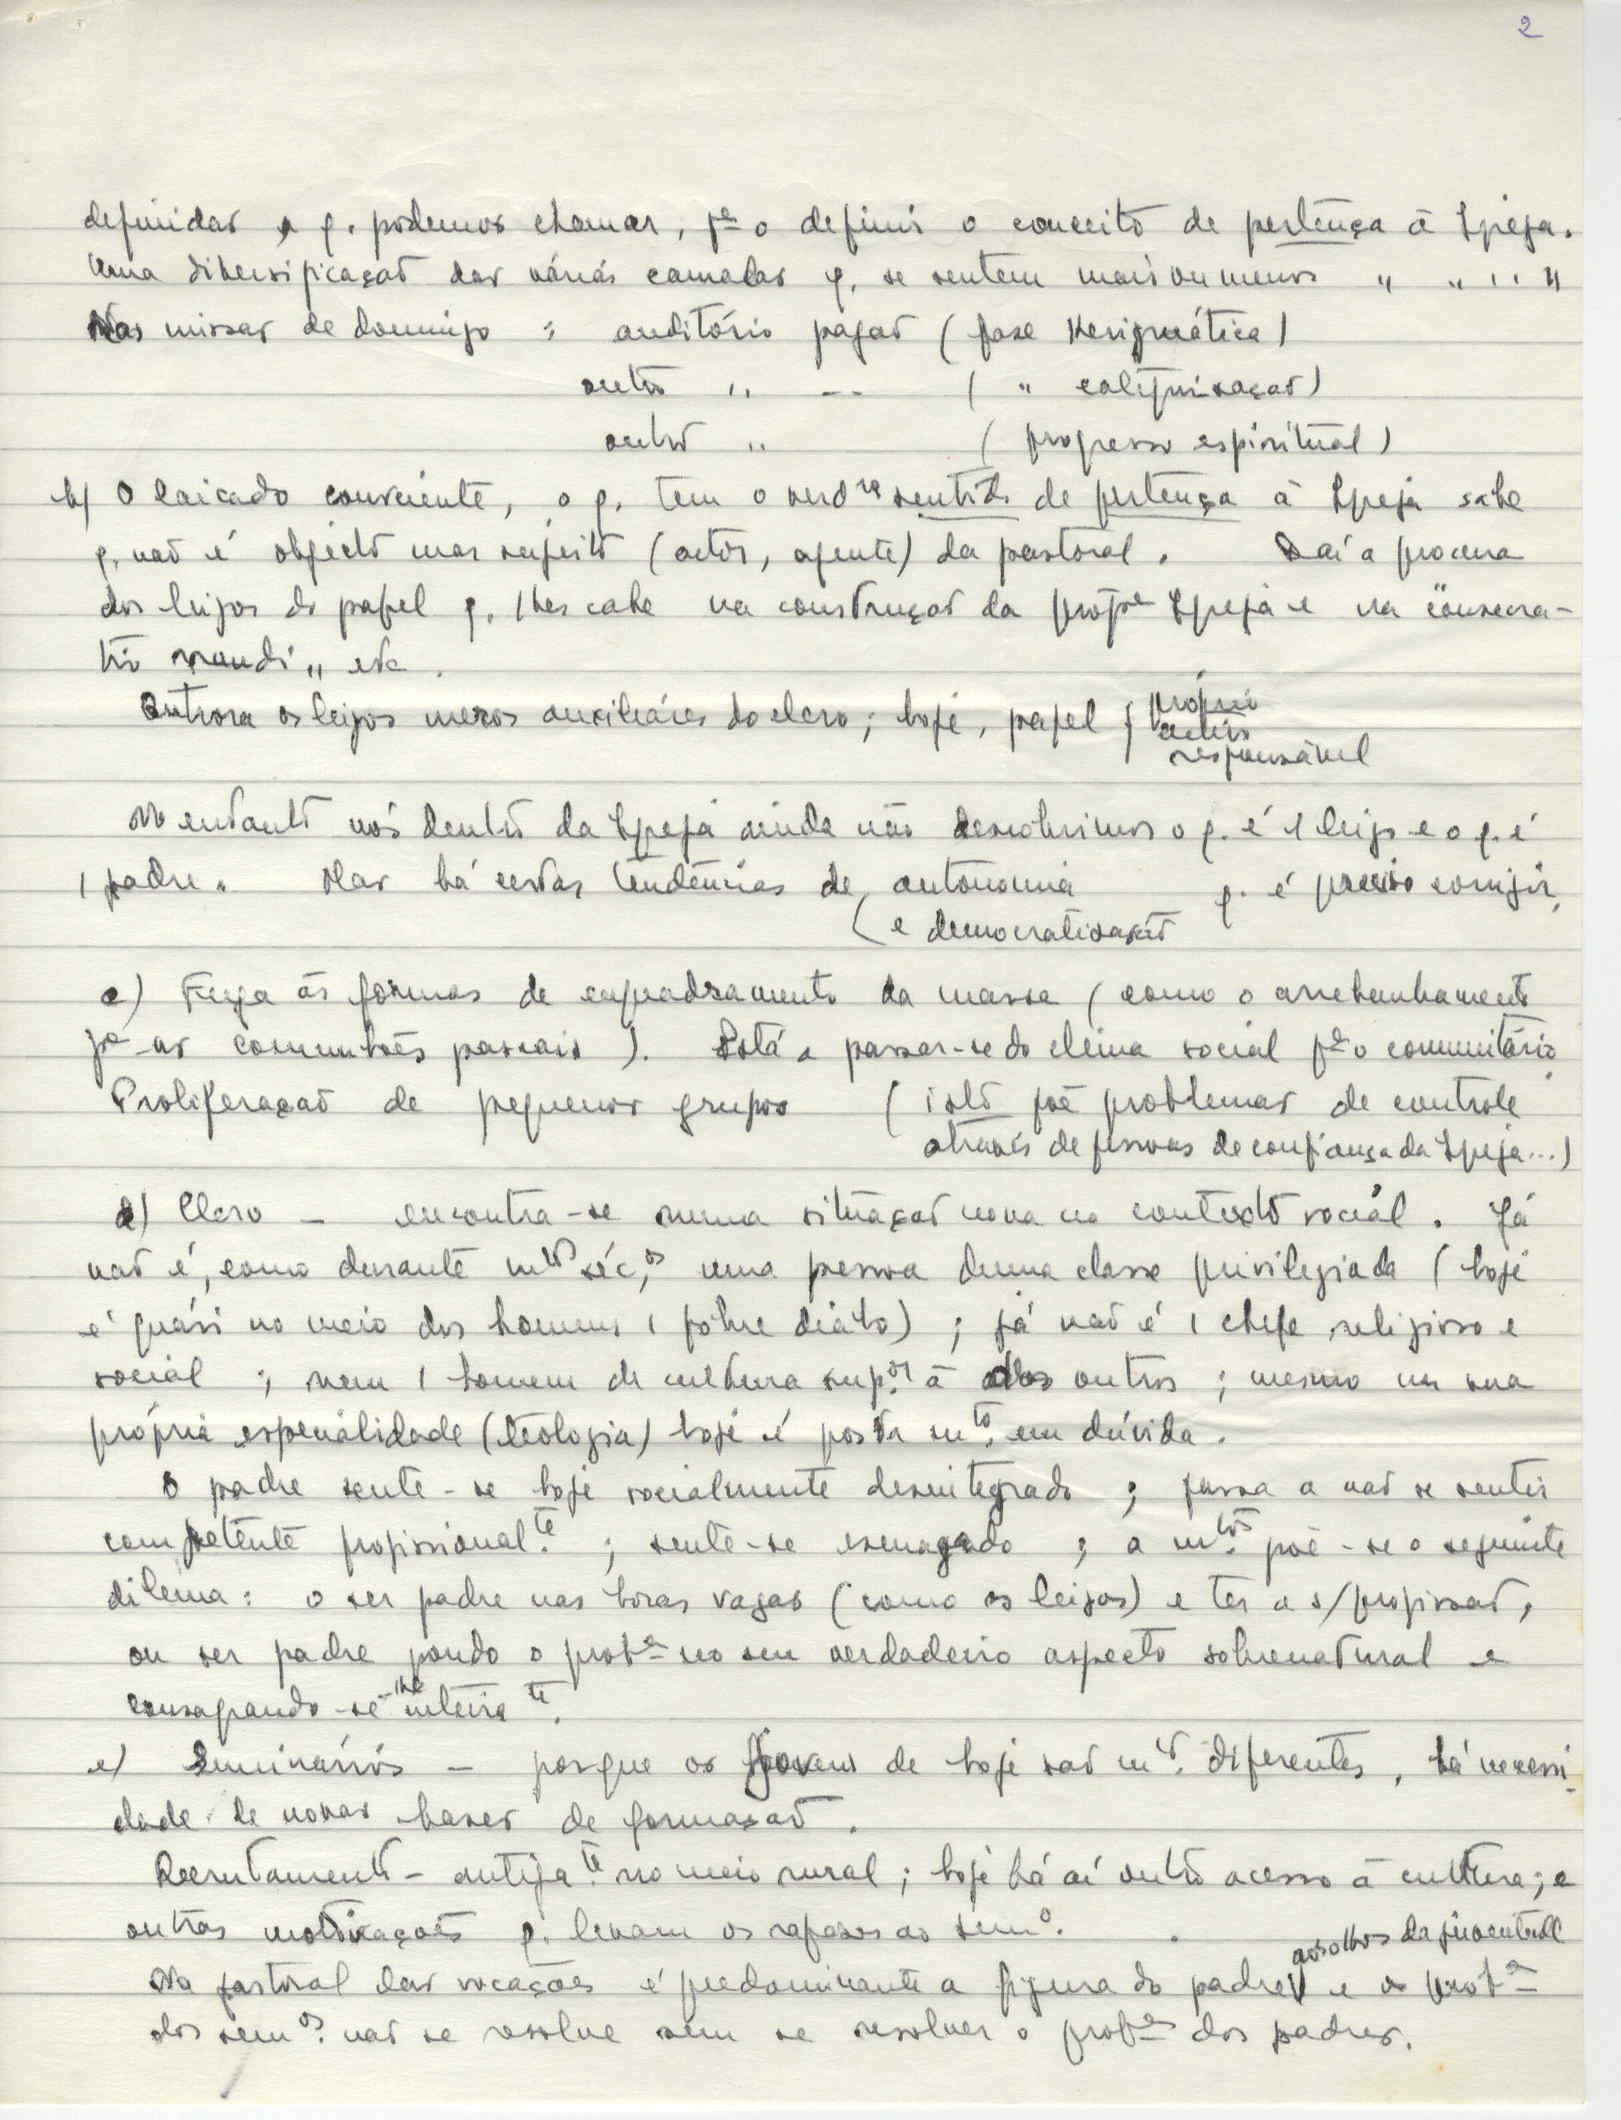 2
definidas a q. podemos chamar, pª o definir o conceito de pertença à Igreja.
Uma diversificação das várias camadas q. se sentem mais ou menos " " " "
Nas missas de domingo : auditório pagão (fase Kerigmática)
outro " -- ( " catequisação)
outro " (progresso espiritual)
b) O laicado consciente, o q. tem o verdº sentido de pertença à Igreja sabe
q. não é objecto mas sujeito (actor, agente) da pastoral. Daí a procura
dos leigos do papel q. lhes cabe na construção da própª Igreja e na "consecra-
tio mundi" etc.
Outrora os leigos meros auxiliares do clero; hoje, papel { próprio
activo
responsável
No entanto nós dentro da Igreja ainda não descobrimos o q. é 1 leigo e o q. é
1 padre. Mas há certas tendências de autonomia q. é preciso corrigir,
( e democratização
c) Fuga às formas de enquadramento da massa (como o arrebanhamento
pª as comunhões pascais). Está a passar-se do clima social pª o comunitário.
Proliferação de pequenos grupos (isto põe problemas de controle
através de pessoas de confiança da Igreja...)
d) Clero – encontra-se numa situação nova no contexto social. Já
não é, como durante mtºs séc.ºs, uma pessoa duma classe privilegiada (hoje
é quási no meio dos homens 1 pobre diabo) ; já não é 1 chefe religioso e
social ; nem 1 homem de cultura sup.or à dos outros ; mesmo na sua
própria especialidade (teologia) hoje é posta mto. em dúvida.
O padre sente-se hoje socialmente desintegrado ; passa a não se sentir
competente profissional.te ; sente-se esmagado ; a mtos. põe-se o seguinte
dilema: o ser padre nas horas vagas (como os leigos) e ter a s/profissão,
ou ser padre pondo o probª no seu verdadeiro aspecto sobrenatural e
consagrando-se-lhe inteira te.
e) Seminários – porque os jovens de hoje são mtº. diferentes, há necessi-
dade de novas bases de formação.
Recrutamento – antiga.te no meio rural; hoje há aí outro acesso à cultura; e
outras motivações q. levam os rapazes ao semº.
Na pastoral das vocações é predominante a figura do padre aos olhos da juventude e o probª
dos semºs. não se resolve sem se resolver o probª dos padres.